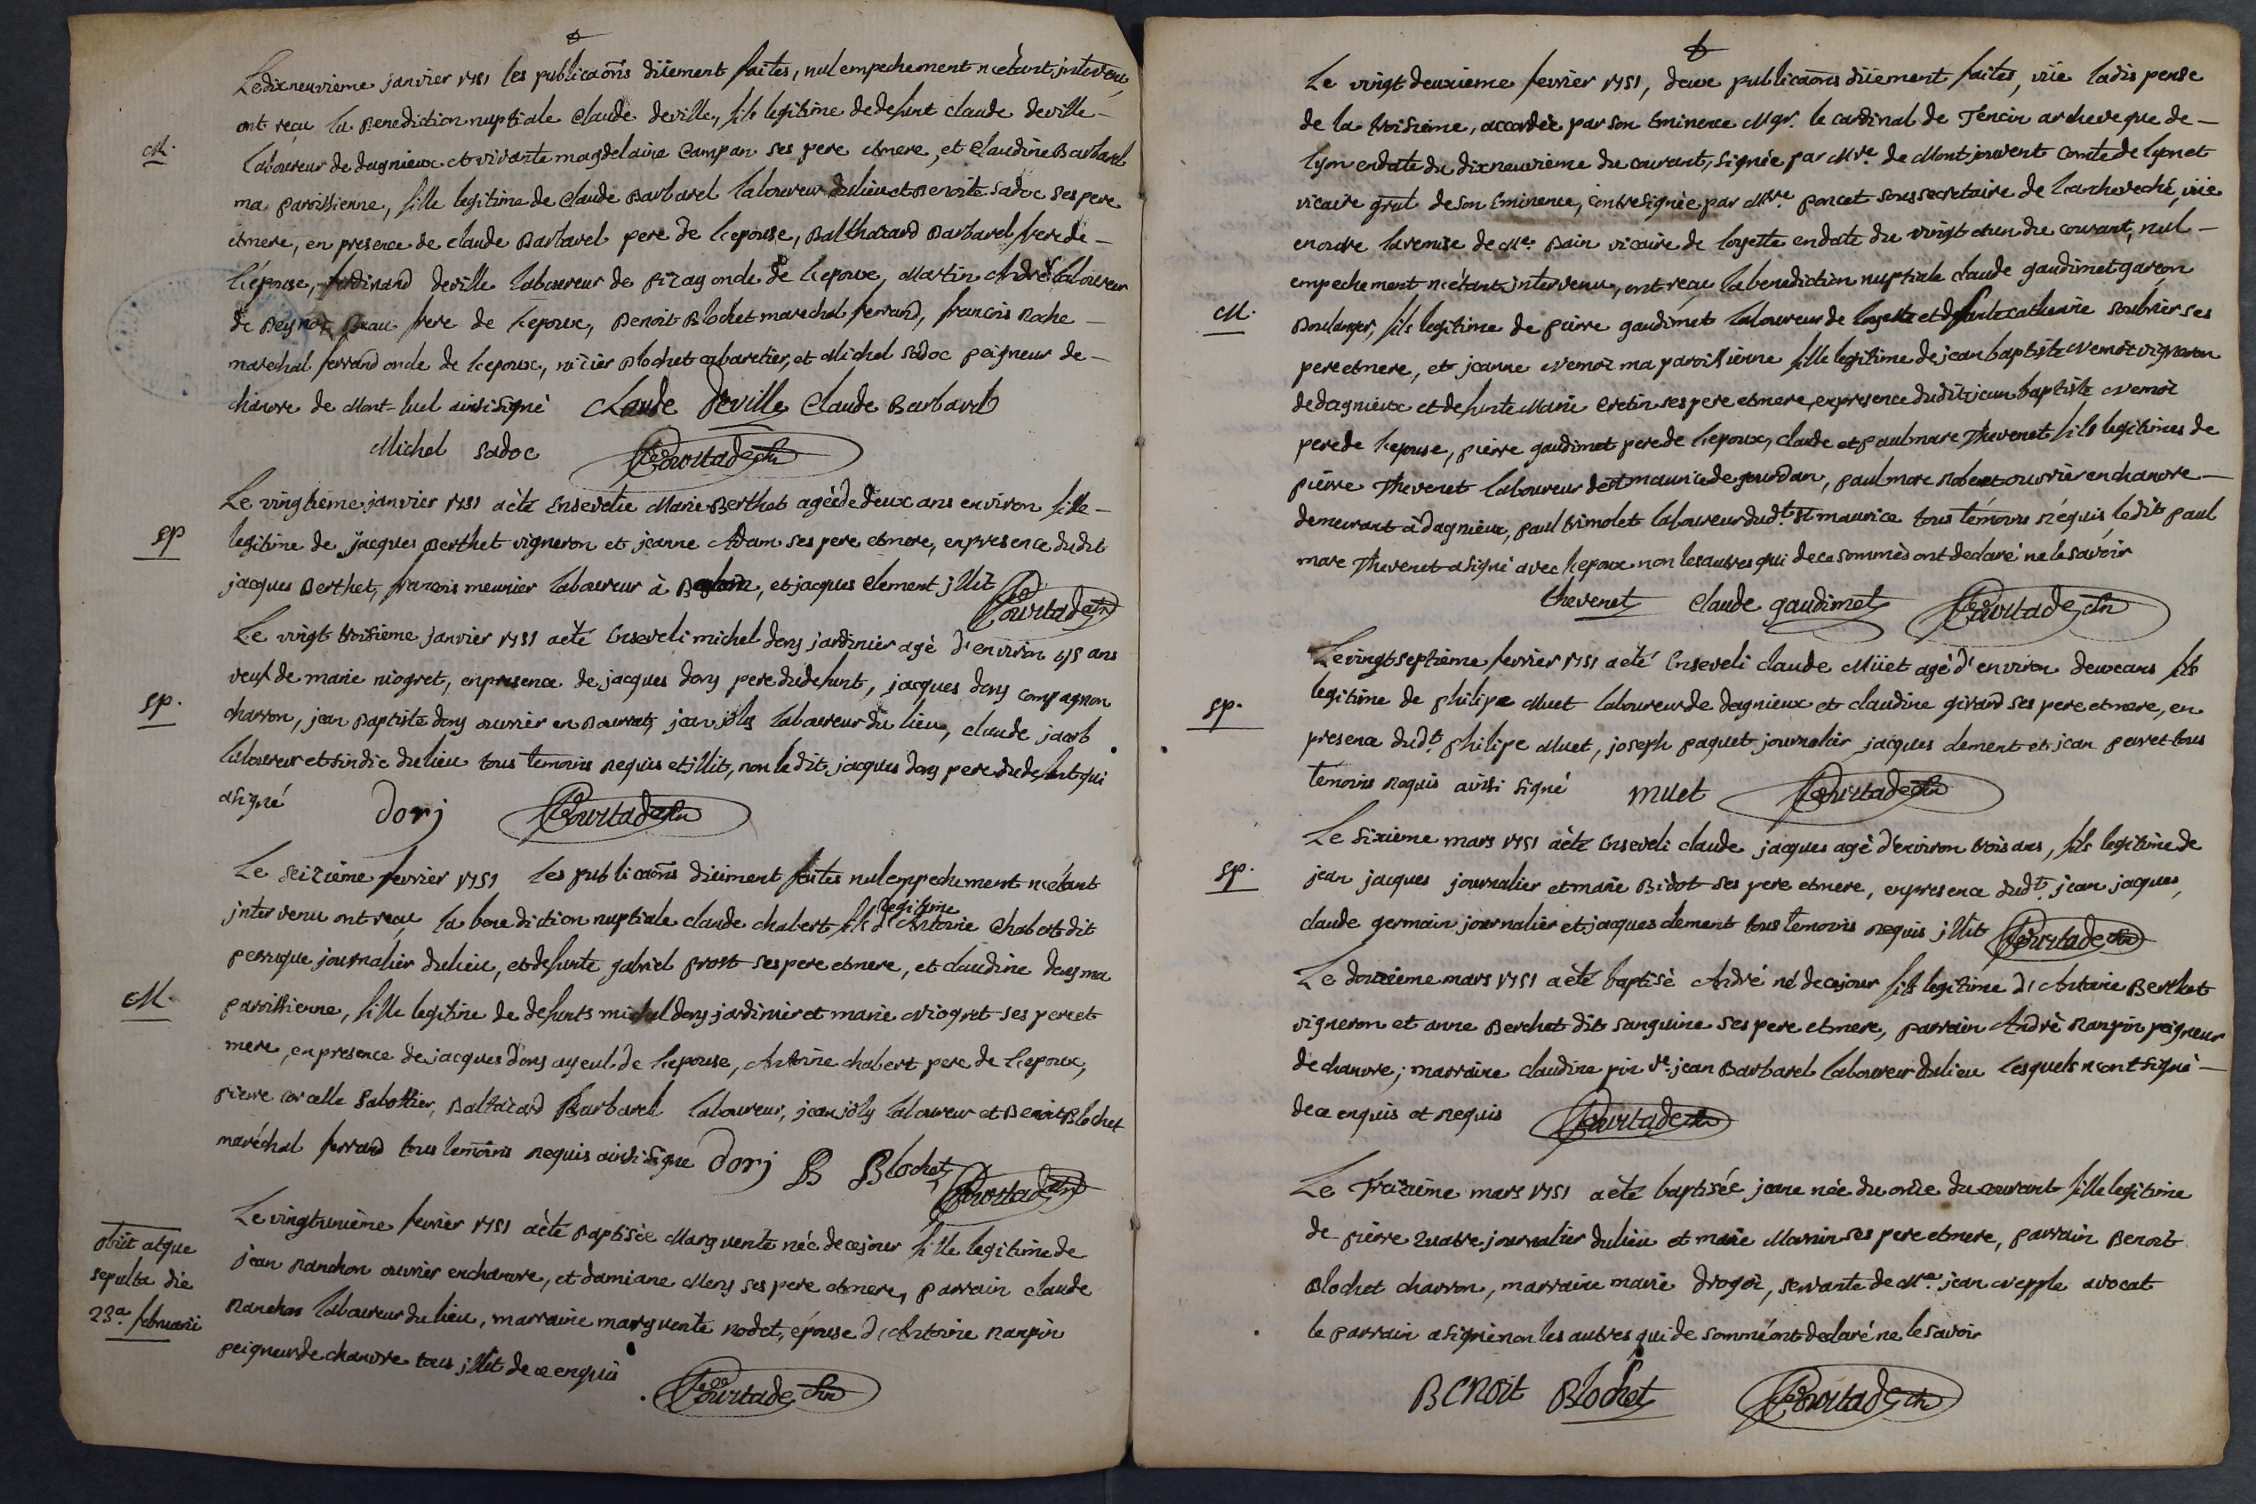 Le dix neuvieme janvier 1751 les publicaons düement faites, nul empechement n'etant intervenu,
ont reçu la Benediction nuptiale Claude deville, fils legitime de defunt claude deville -
M.
laboureur de dagnieux et vivante magdelaine Campan ses pere et mere, et Claudine Barbarel
ma paroissienne, fille legitime de Claude Barbarel laboureur du lieu et Benoite Sadoc ses pere
et mere, en presence de claude Barbarel pere de l'epouse, Balthazard Barbarel frere de -
l'épouse, ferdinand deville laboureur de pizay oncle de l'epoux, Martin André laboureur
de Beynot beau frere de l'epoux, Benoit Blochet marechal ferrand, françois Roche -
marechal ferrand oncle de l'epoux, Blochet cabaretier, et Michel Sadoc peigneur de -
chanvre de Mont-luel ainsi signé Claude Deville Claude Barbarel
Michel Sadoc Courtade
Le vingtieme janvier 1751 a été Ensevelie Marie Berthet agée de deux ans environ fille -
sp
legitime de jacques Berthet vigneron et jeanne Adam ses pere et mere, en presence dudit
jacques Berthet, francois meunier laboureur à, et jacques Clement illit Courtade
Le vingt troisieme janvier 1751 a été Enseveli michel dory jardinier agé d'environ 45 ans
sp.
veuf de marie niogret, en presence de jacques dory pere du defunt, jacques dory compagnon
charron, jean Baptiste dory ouvrier en Bourrat, jean joly laboureur du lieu, claude jacob
laboureur et sindic du lieu tous temoins requis et illit, non ledit jacques dory pere du defunt qui
a signé Dorj Courtade
Le seizième fevrier 1751 les publicaons düement faites nul empechement n'etant
legitime
intervenu ont reçu la benediction nuptiale claude chabert fils d'Antoine Chabert dit
perruque journalier du lieu, et defunte gabriel prost ses pere et mere, et claudine dory ma
M.
paroissienne, fille legitime de defunts michel dory jardinier et marie Niogret ses pere et
mere, en presence de jacques dory ayeul de l'epouse, Antoine chabert pere de l'epoux,
pierre corcelle sabottier, Baltazard Barbarel laboureur, jean joly laboureur et Benoit Blochet
maréchal ferrand tous temoins requis ainsi signé Dorj B Blochet Courtade
Le vingtunieme fevrier 1751 a été Baptisée Marguerite née de ce jour fille legitime de
obiit atque
sepulta die
23a. februarii
jean Nanchon ouvrier en chanvre, et damiane Mery ses pere et mere, parrain claude
Nanchon laboureur du lieu, marraine marguerite nodet, épouse d'Antoine Nanpin
peigneur de chanvre tous illit de ce enquis
Courtade
Le vingt deuxieme fevrier 1751, deux publicaons düement faites, vüe la dispense
de la troisieme, accordée par son Eminence Mgr. le cardinal de Tencin archeveque de -
lyon en date du dix neuvieme du courant, signée par Mre. de Montjouvent Comte de lyon et
vicaire gral de son Eminence, contresignée par Mtre poncet soussecretaire de l'archeveché, vüe
en outre la remise de Me. Bain vicaire de loyette en date du vingt et un du courant, nul -
empechement n'étant intervenu, ont reçu la benediction nuptiale claude gaudimet garçon
M.
Boulanger, fils legitime de pierre gaudimet laboureur de loyette et defunte catherine soubrier ses
pere et mere, et jeanne Nemoz ma paroissienne fille legitime de jean baptiste Nemoz vigneron
de dagnieux et defunte Marie Cretin ses pere et mere, en presence dudit jean baptiste Nemoz
pere de l'epouse, pierre gaudimet pere de l'epoux, claude et paul marc Thevenet fils legitimes de
pierre Thevenet laboureur de st maurice de gourdan, paul marc Robert ouvrier en chanvre -
demeurant à dagnieux, paul trimolet laboureur dudt. st maurice tous témoins réquis ledit paul
marc Thevenet a signé avec l'epoux non les autres qui de ce sommés ont declaré ne le savoir
thevenet Claude gaudimet Courtade
Le vingt septieme fevrier 1751 a été Enseveli claude Müet agé d'environ deux ans fils
sp.
legitime de philipe Muet laboureur de dagnieux et claudine girard ses pere et mere, en
presence dudt. philipe Muet, joseph paquet journalier jacques clement et jean perret tous
temoins requis ainsi signé muet Courtade
Le sixieme mars 1751 a été Enseveli claude jacques agé d'environ trois ans, fils legitime de
sp.
jean jacques journalier et marie Bidot ses pere et mere, en presence dudt. jean jacques,
claude germain journalier et jacques clement tous temoins requis illit Courtade
Le douzieme mars 1751 a été baptisé André né de ce jour fils legitime d'Antoine Berthet
vigneron et anne Berchet dit sanguine ses pere et mere, parrain André Nanpin peigneur
de chanvre; marraine claudine pin ve. jean Barbarel laboureur du lieu lesquels n'ont signé -
de ce enquis et requis Courtade
Le Treizieme mars 1751 a été baptisée jeane née du onze du courant fille legitime
de pierre Quatre journalier du lieu et marie Monin ses pere et mere, parrain Benoit
Blochet charron, marraine marie drogoz, servante de Me. jean Nepple avocat
le parrain a signé non les autres qui de sommé ont declaré ne le savoir
BENOit Blochet Courtade